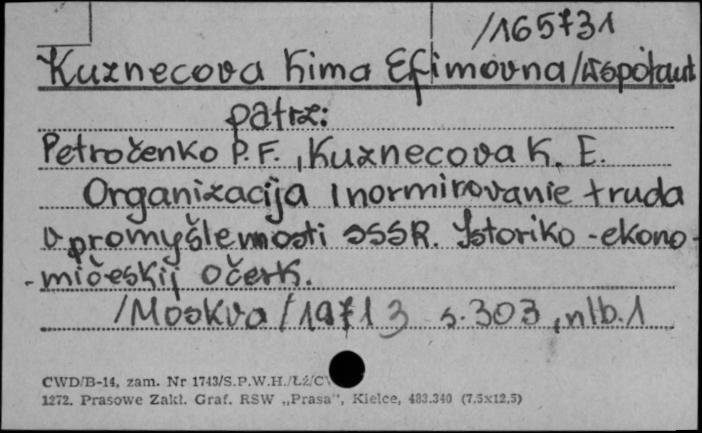 /165731
Kuznecova Kima Efimovna/współaut
patrz:
Petročenko P.F., Kuznecova K. E.
Organizacija i normirovanie truda
v promyšlennosti SSSR. Istoriko-ekono-
-mičeskij očerk.
/Moskva/1971 3 s.303, nlb.1
CWD/B-14, zam. Nr 1743/S.P.W.H./Łź/C
1272. Prasowe Zakł. Graf. RSW „Prasa”, Kielce, 483.340 (7.5x12,5)